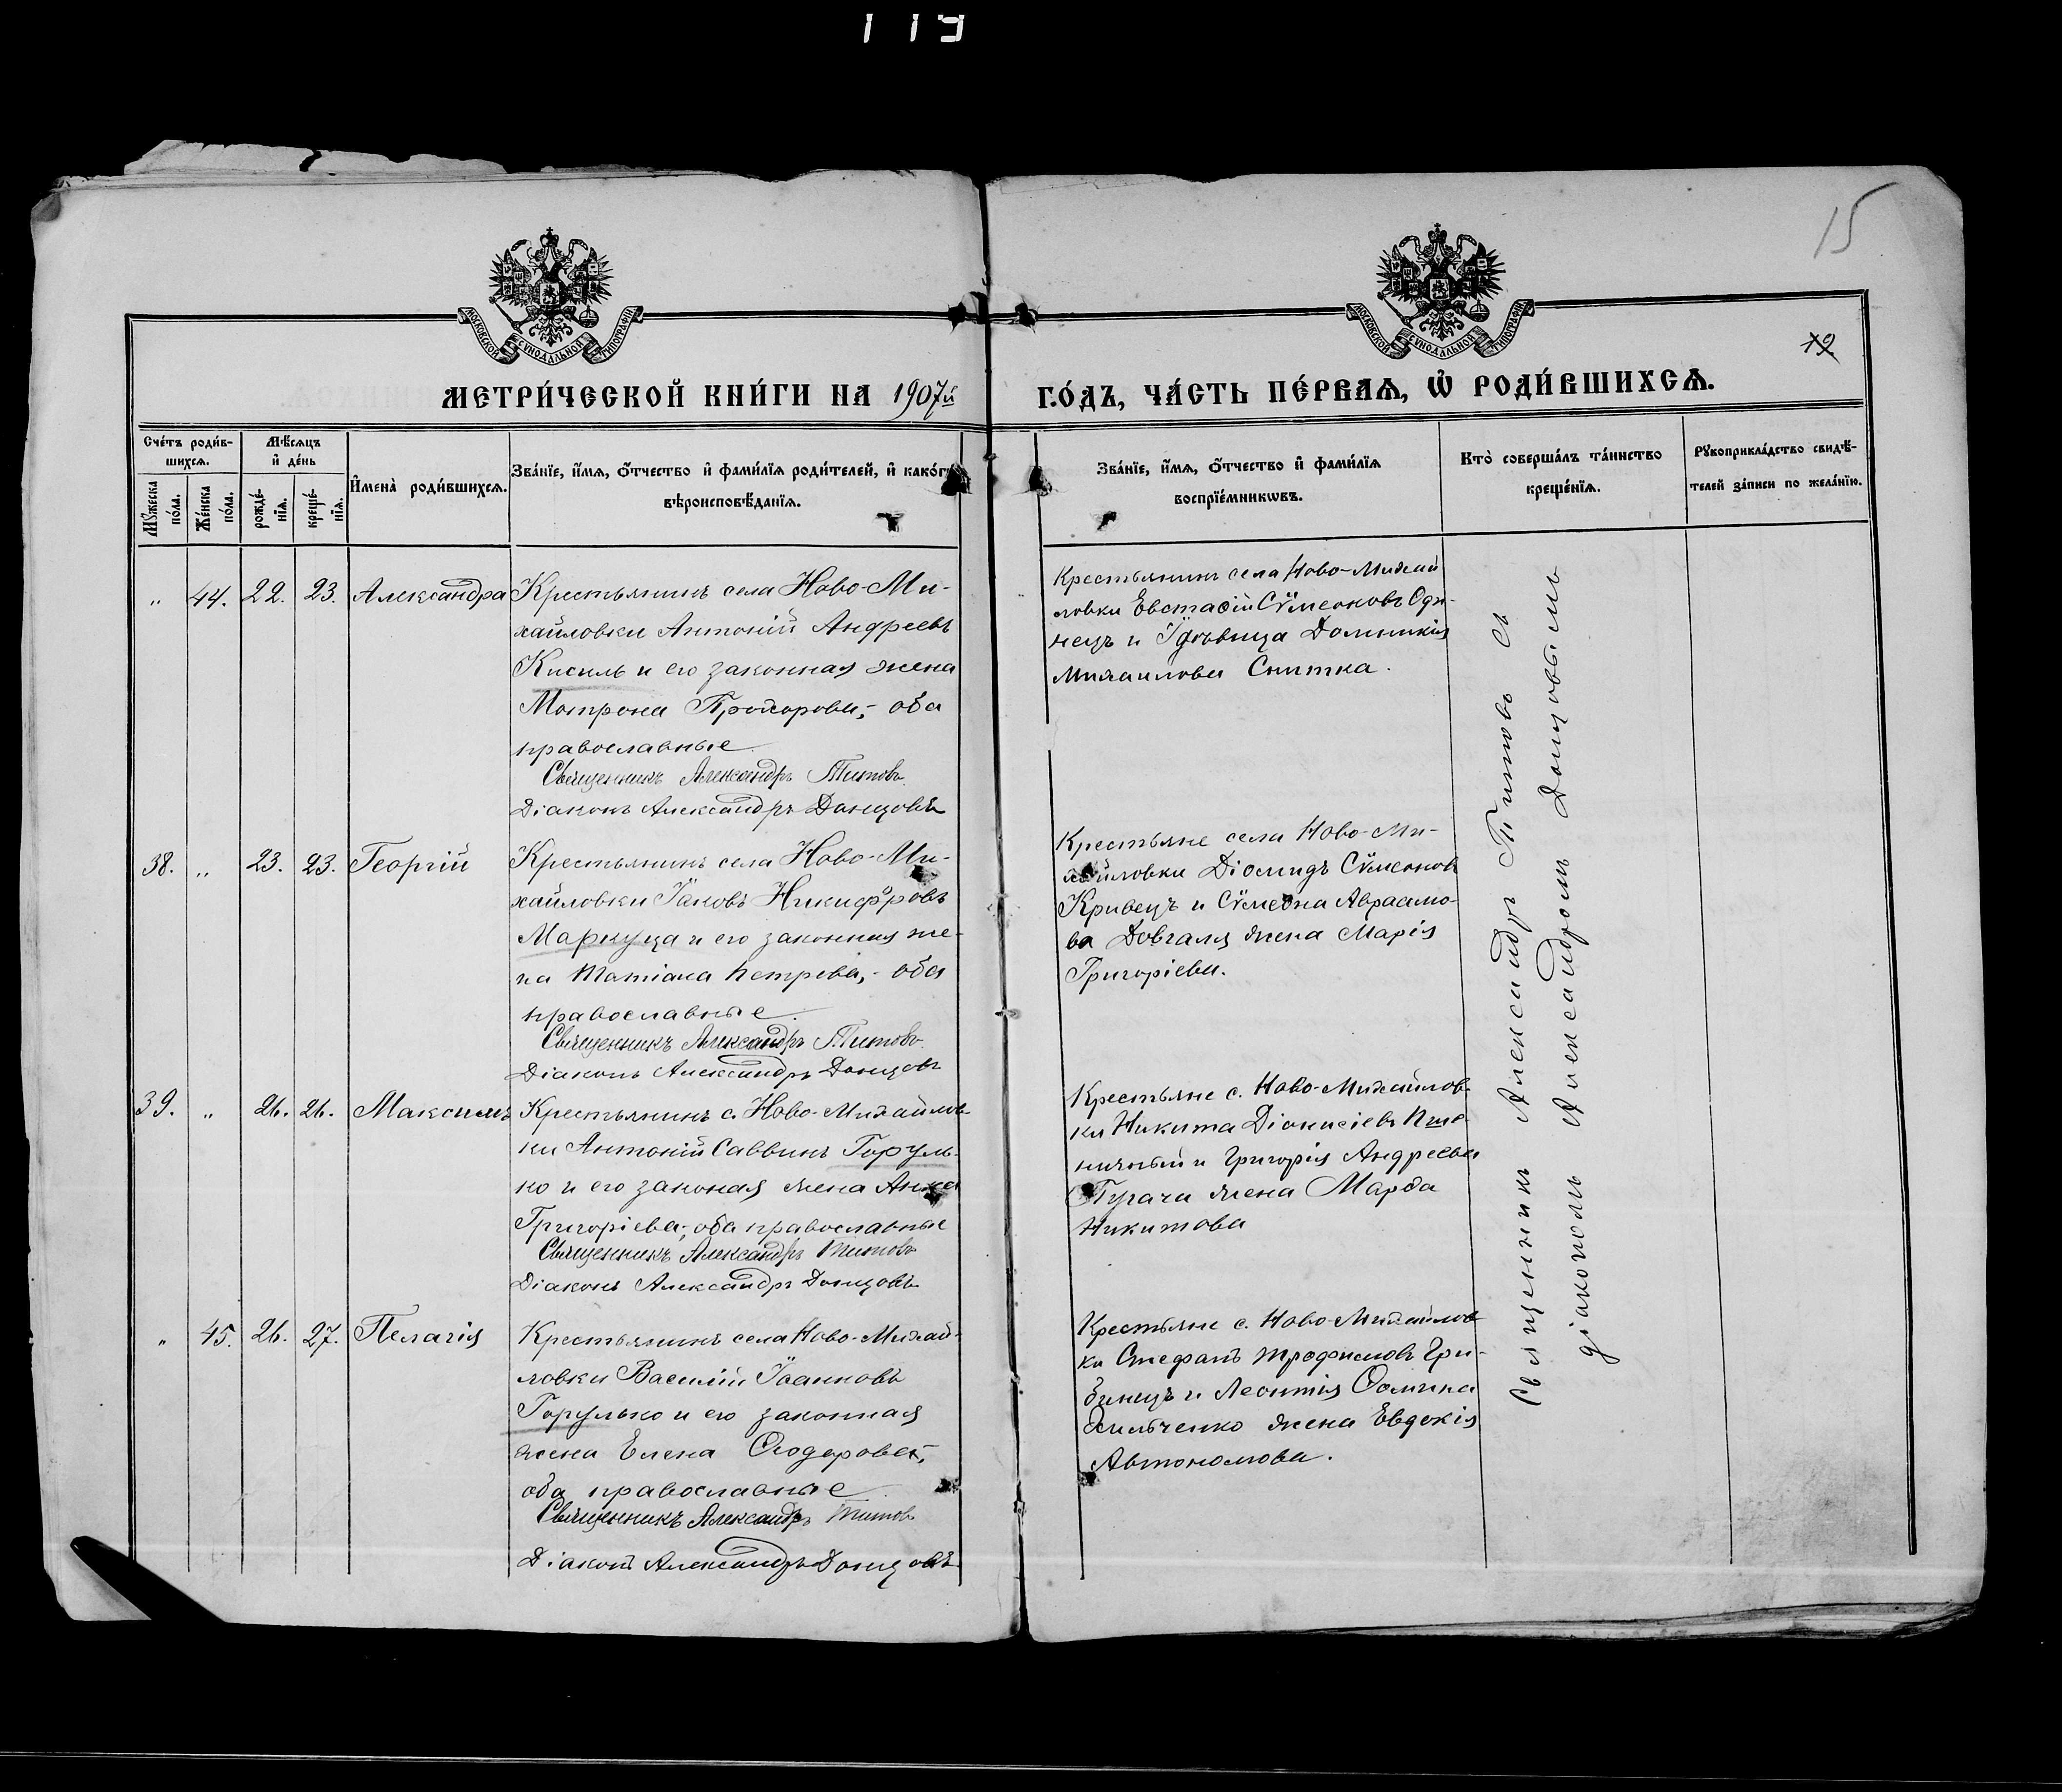 119
15
МОСКОВСКОЙ СѴНОДАЛЬНОЙ ТИПОГРАФІИ
МОСКОВСКОЙ СѴНОДАЛЬНОЙ ТИПОГРАФІИ
19
МЕТРИ́ЧЕСКОЙ КНИ́ГИ НА 1907й
ГО́ДЪ, ЧА́СТЬ ПЕ́РВАѦ, Ѡ҆ РОДИ́ВШИХСѦ.
Сче́тъ роди́в-
шихсѧ.
Мꙋ́жеска по́ла.
Же́нска по́ла.
Мѣ́сѧцъ
и҆ де́нь
рожде́-
нїѧ.
креще́-
нїѧ.
И҆мена̀ роди́вшихсѧ.
Зва́нїе, и҆́мѧ, ѻ҆́тчество и҆ фами́лїѧ роди́телей, и҆ како́гѡ
вѣроисповѣ́данїѧ.
Зва́нїе, и҆́мѧ, ѻ҆́тчество и҆ фами́лїѧ
воспрїе́мникѡвъ.
Кто̀ соверша́лъ та́инство
креще́нїѧ.
Рꙋкоприкла́дство свидѣ́-
телей за́писи по жела́нїю.
„ 44. 22. 23. Александра
Крестьянинъ села Ново-Ми-
хайловки Антоній Андреевъ
Кисиль и его законная жена
Матрона Прохорова,- оба
православные
Священникъ Александръ Титовъ
Діаконъ Александръ Донцовъ
Крестьянинъ села Ново-Михай
ловки Евстаѳій Сѵмеоновъ Оди-
нецъ и вдовица Домникія
Михаилова Снитка.
38. „ 23. 23. Георгій
Крестьянинъ села Ново-Ми-
хайловки Іаковъ Никифоровъ
Маркуца и его законная же-
на Татіана Петрова,- оба
православные
Священникъ Александръ Титовъ
Діаконъ Александръ Донцовъ
Крестьяне села Ново-Ми-
хайловки Діомидъ Сѵмеоновъ
Кривецъ и Сѵмеона Авраамо-
ва Довгаля жена Марія
Григоріева.
39. „ 26. 26. Максимъ
Крестьянинъ с. Ново-Михайлов-
ки Антоній Саввинъ Горуль-
ко и его законая жена Анна
Григоріева,- оба православные
Священникъ Александръ Титовъ
Діаконъ Александръ Донцовъ
Крестьяне с. Ново-Михайлов-
ки Никита Діонисіевъ Пше-
ничный и Григорія Андреева
Пугача жена Марѳа
Никитова
„ 45. 26. 27. Пелагія
Крестьянинъ села Ново-Михай-
ловки Василій Іоанновъ
Горулько и его законная
жена Елена Ѳеодорова,
оба православные
Священникъ Александръ Титовъ
Діаконъ Александръ Донцовъ
Крестьяне с. Ново-Михайлов
ки Стефанъ Трофимовъ Гри-
бинецъ и Леонтія Ѳомина
жена Евдокія
Автономова.
Священникъ Александръ Титовъ съ
діакономъ Александромъ Донцовымъ